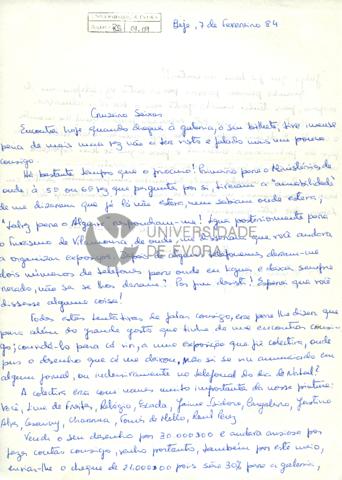 Beja, 7 de Fevereiro 84
Cruzeiro Seixas
Encontrei hoje quando cheguei à galeria, o seu bilhete, tive imensa
pena de mais uma vez não o ter visto e falado mais um pouco
consigo.
Há bastante tempo que o procuro! Primeiro para o Ministério,
onde, à 5ª ou 6ª vez que pergunto por si, tiveram a "amabilidade"
de me dizerem que já lá não estava, nem sabiam onde estava;
"talvez para o Algarve" responderam-me! Liguei posteriormente para
o de Vilamoura, de onde me disseram que você andava
a organizar exposições. Depois de alguns telefonemas, deram-me
dois números de telefones para onde eu liguei, e deixei sempre
recado, não sei se lhos deram? Por fim desisti! Esperei que você
dissesse alguma coisa!
UNIVERSIDADE
DE ÉVORA
Todas estas tentativas de falar consigo, era para lhe dizer que
para além do grande gosto que tinha de me encontrar consi-
go; convidá-lo para cá vir, a uma exposição que fiz colectiva, onde
pus o desenho que cá me deixou, não sei se viu anunciado em
algum jornal, ou inclusivamente no telejornal do dia de Natal?
A colectiva era com nomes muito importantes da nossa pintura:
Lima de Freitas, Relógio, Escada, Jaime Isidoro, Cargaleiro, Justino
Alves, Charrua, Tomás de Mello, René
Vendi o seu desenho por 30.000$00 e andava ansiosa por
fazer contas consigo, venho portanto, também por este meio,
enviar-lhe o cheque de 21.000$00 pois são 30% para a galeria,